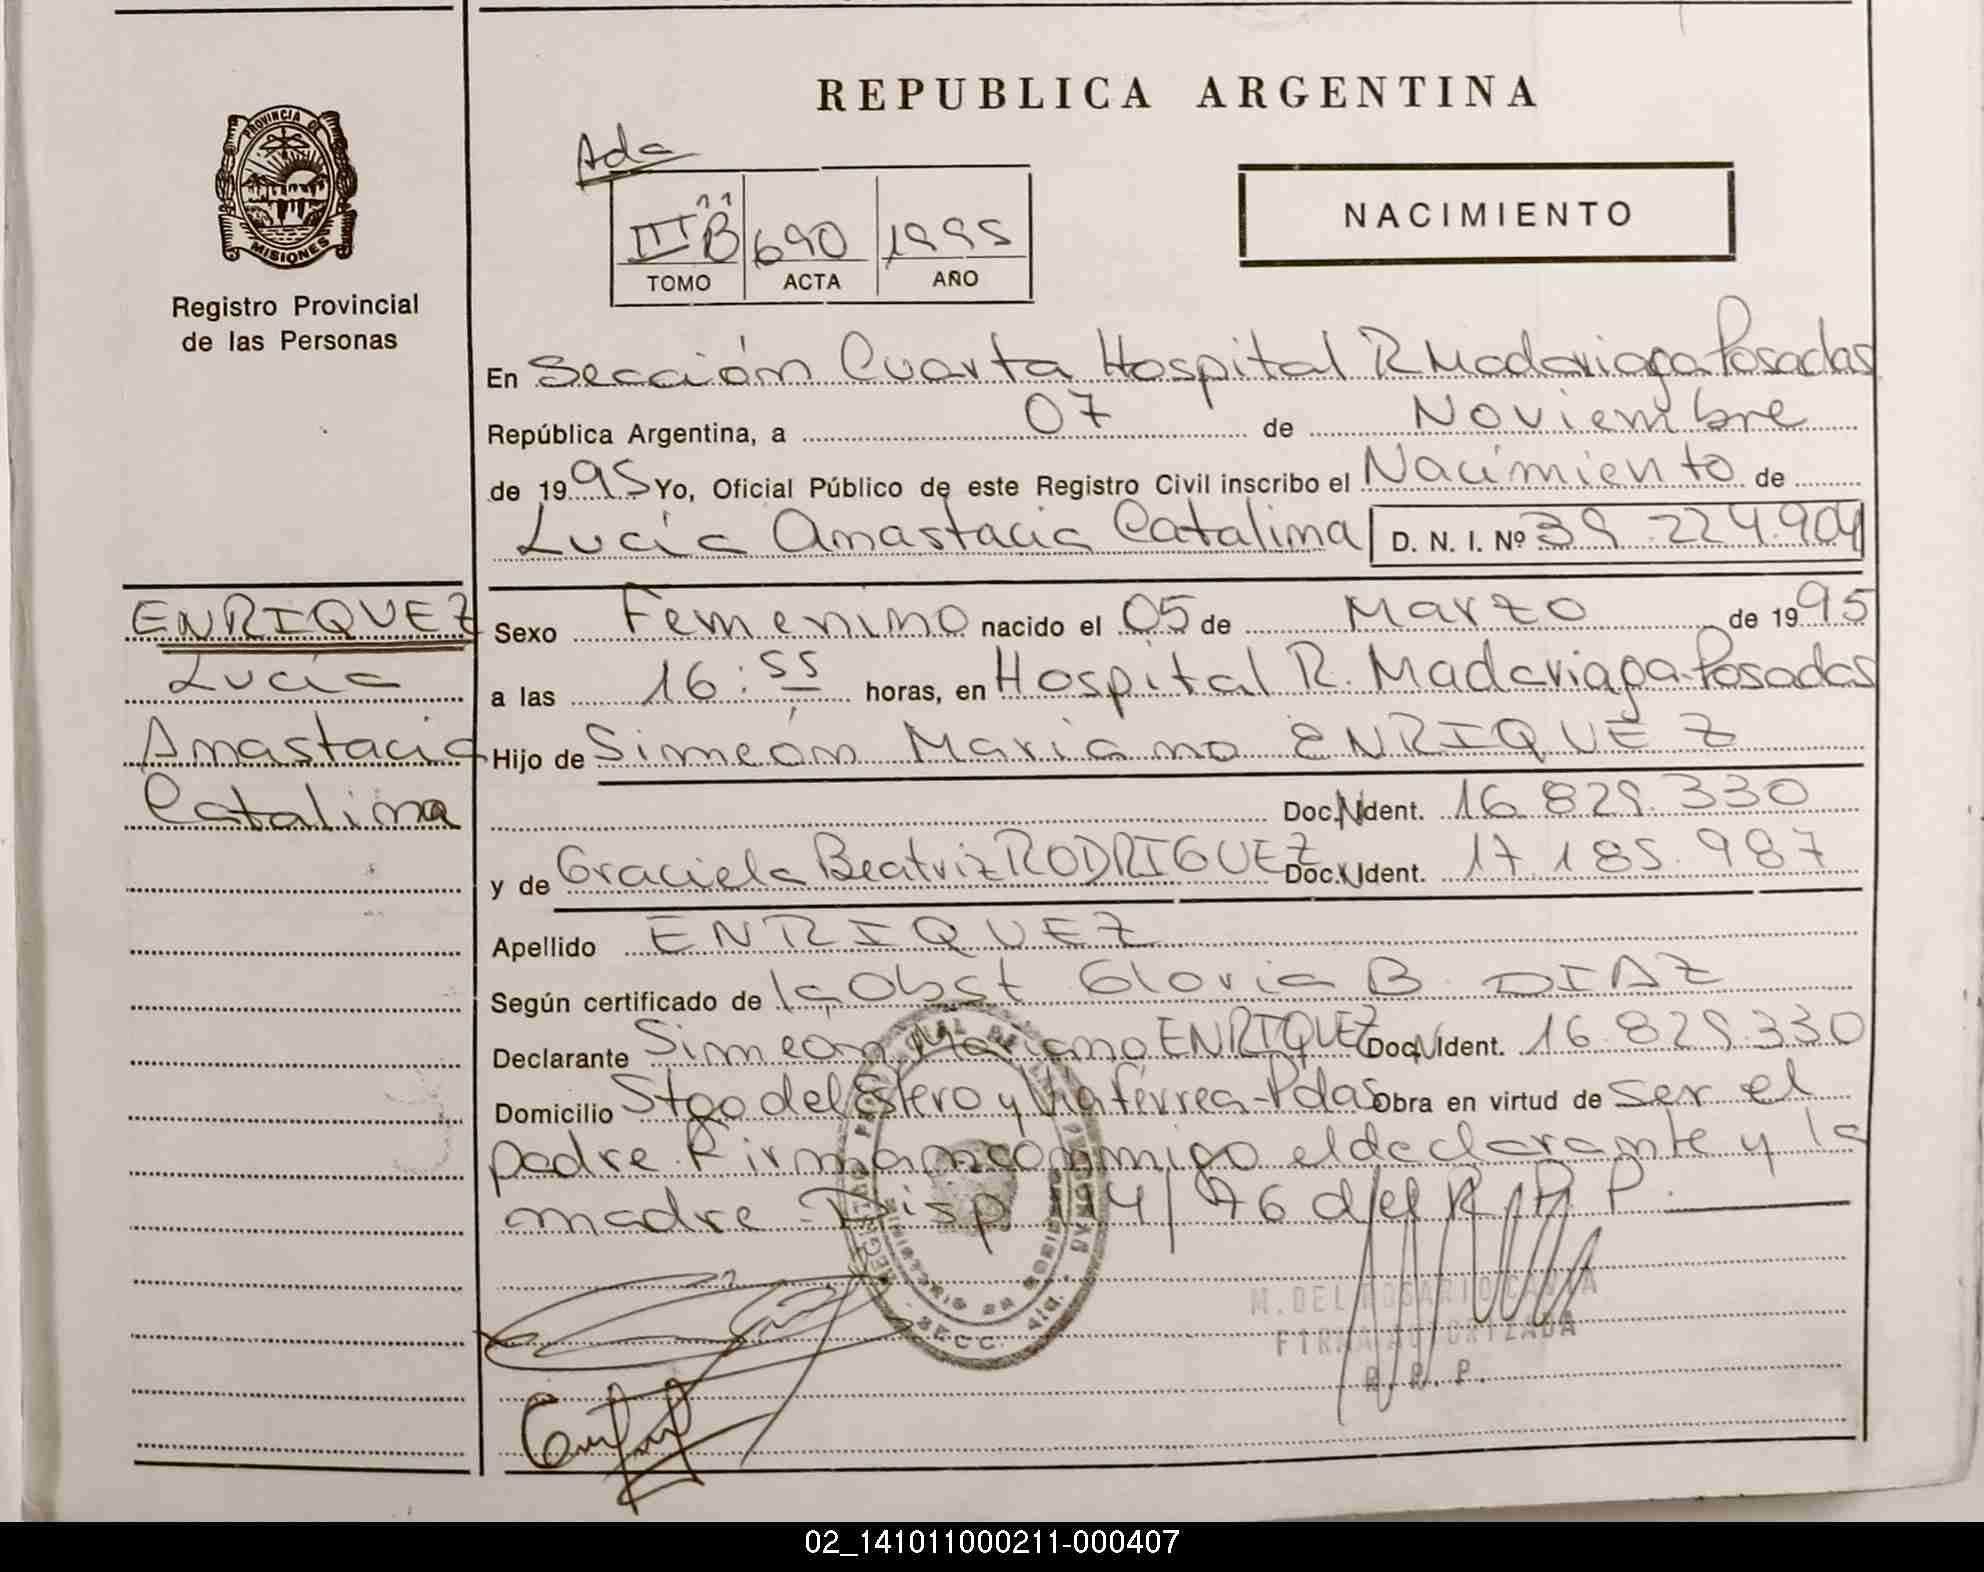 REPUBLICA ARGENTINA
PROVINCIA DE
MISIONES
Registro Provincial
de las Personas
Ada
III "B" 690 1995
TOMO ACTA AÑO
NACIMIENTO
En Sección Cuarta Hospital R Madariaga Posadas
República Argentina, a 07 de Noviembre
de 1995 Yo, Oficial Público de este Registro Civil inscribo el Nacimiento de
Lucía Anastacia Catalina D. N. I. Nº 39.224.904
ENRIQUEZ
Lucía
Anastacia
Catalina
Sexo Femenino nacido el 05 de Marzo de 1995
a las 16:55 horas, en Hospital R. Madariaga-Posadas
Hijo de Simeón Mariano ENRIQUEZ
Doc. Ident. 16.829.330
y de Graciela Beatriz RODRIGUEZ Doc. Ident. 17.185.987
Apellido ENRIQUEZ
Según certificado de la Obst Gloria B. DIAZ
Declarante Simeón Mariano ENRIQUEZ Doc. Ident. 16.829.330
Domicilio Stgo del Estero y Vía Férrea-Pdas Obra en virtud de ser el
padre. Firman conmigo el declarante y la
madre. Disp 114/76 del R.P.P.
SECC. 4ta.
M. DEL ROSARIO
FIRMA AUTORIZADA
R. P. P.
02_141011000211-000407